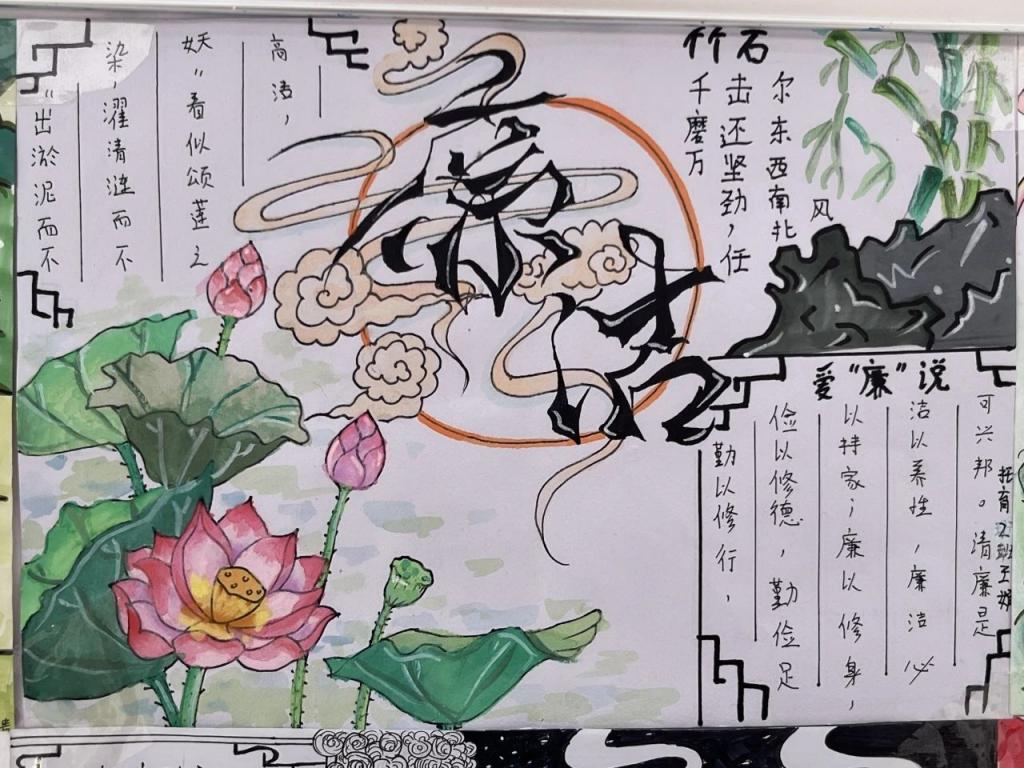 "出淤泥而不
染，濯清涟而不
妖"看似颂莲之
高洁，
廉洁
竹石
千磨万
击还坚劲，任
尔东西南北
风
爱"廉"说
勤以修行，
俭以修德，勤俭足
以持家；廉以修身，
洁以养性，廉洁必
可兴邦。清廉是
托育2班王